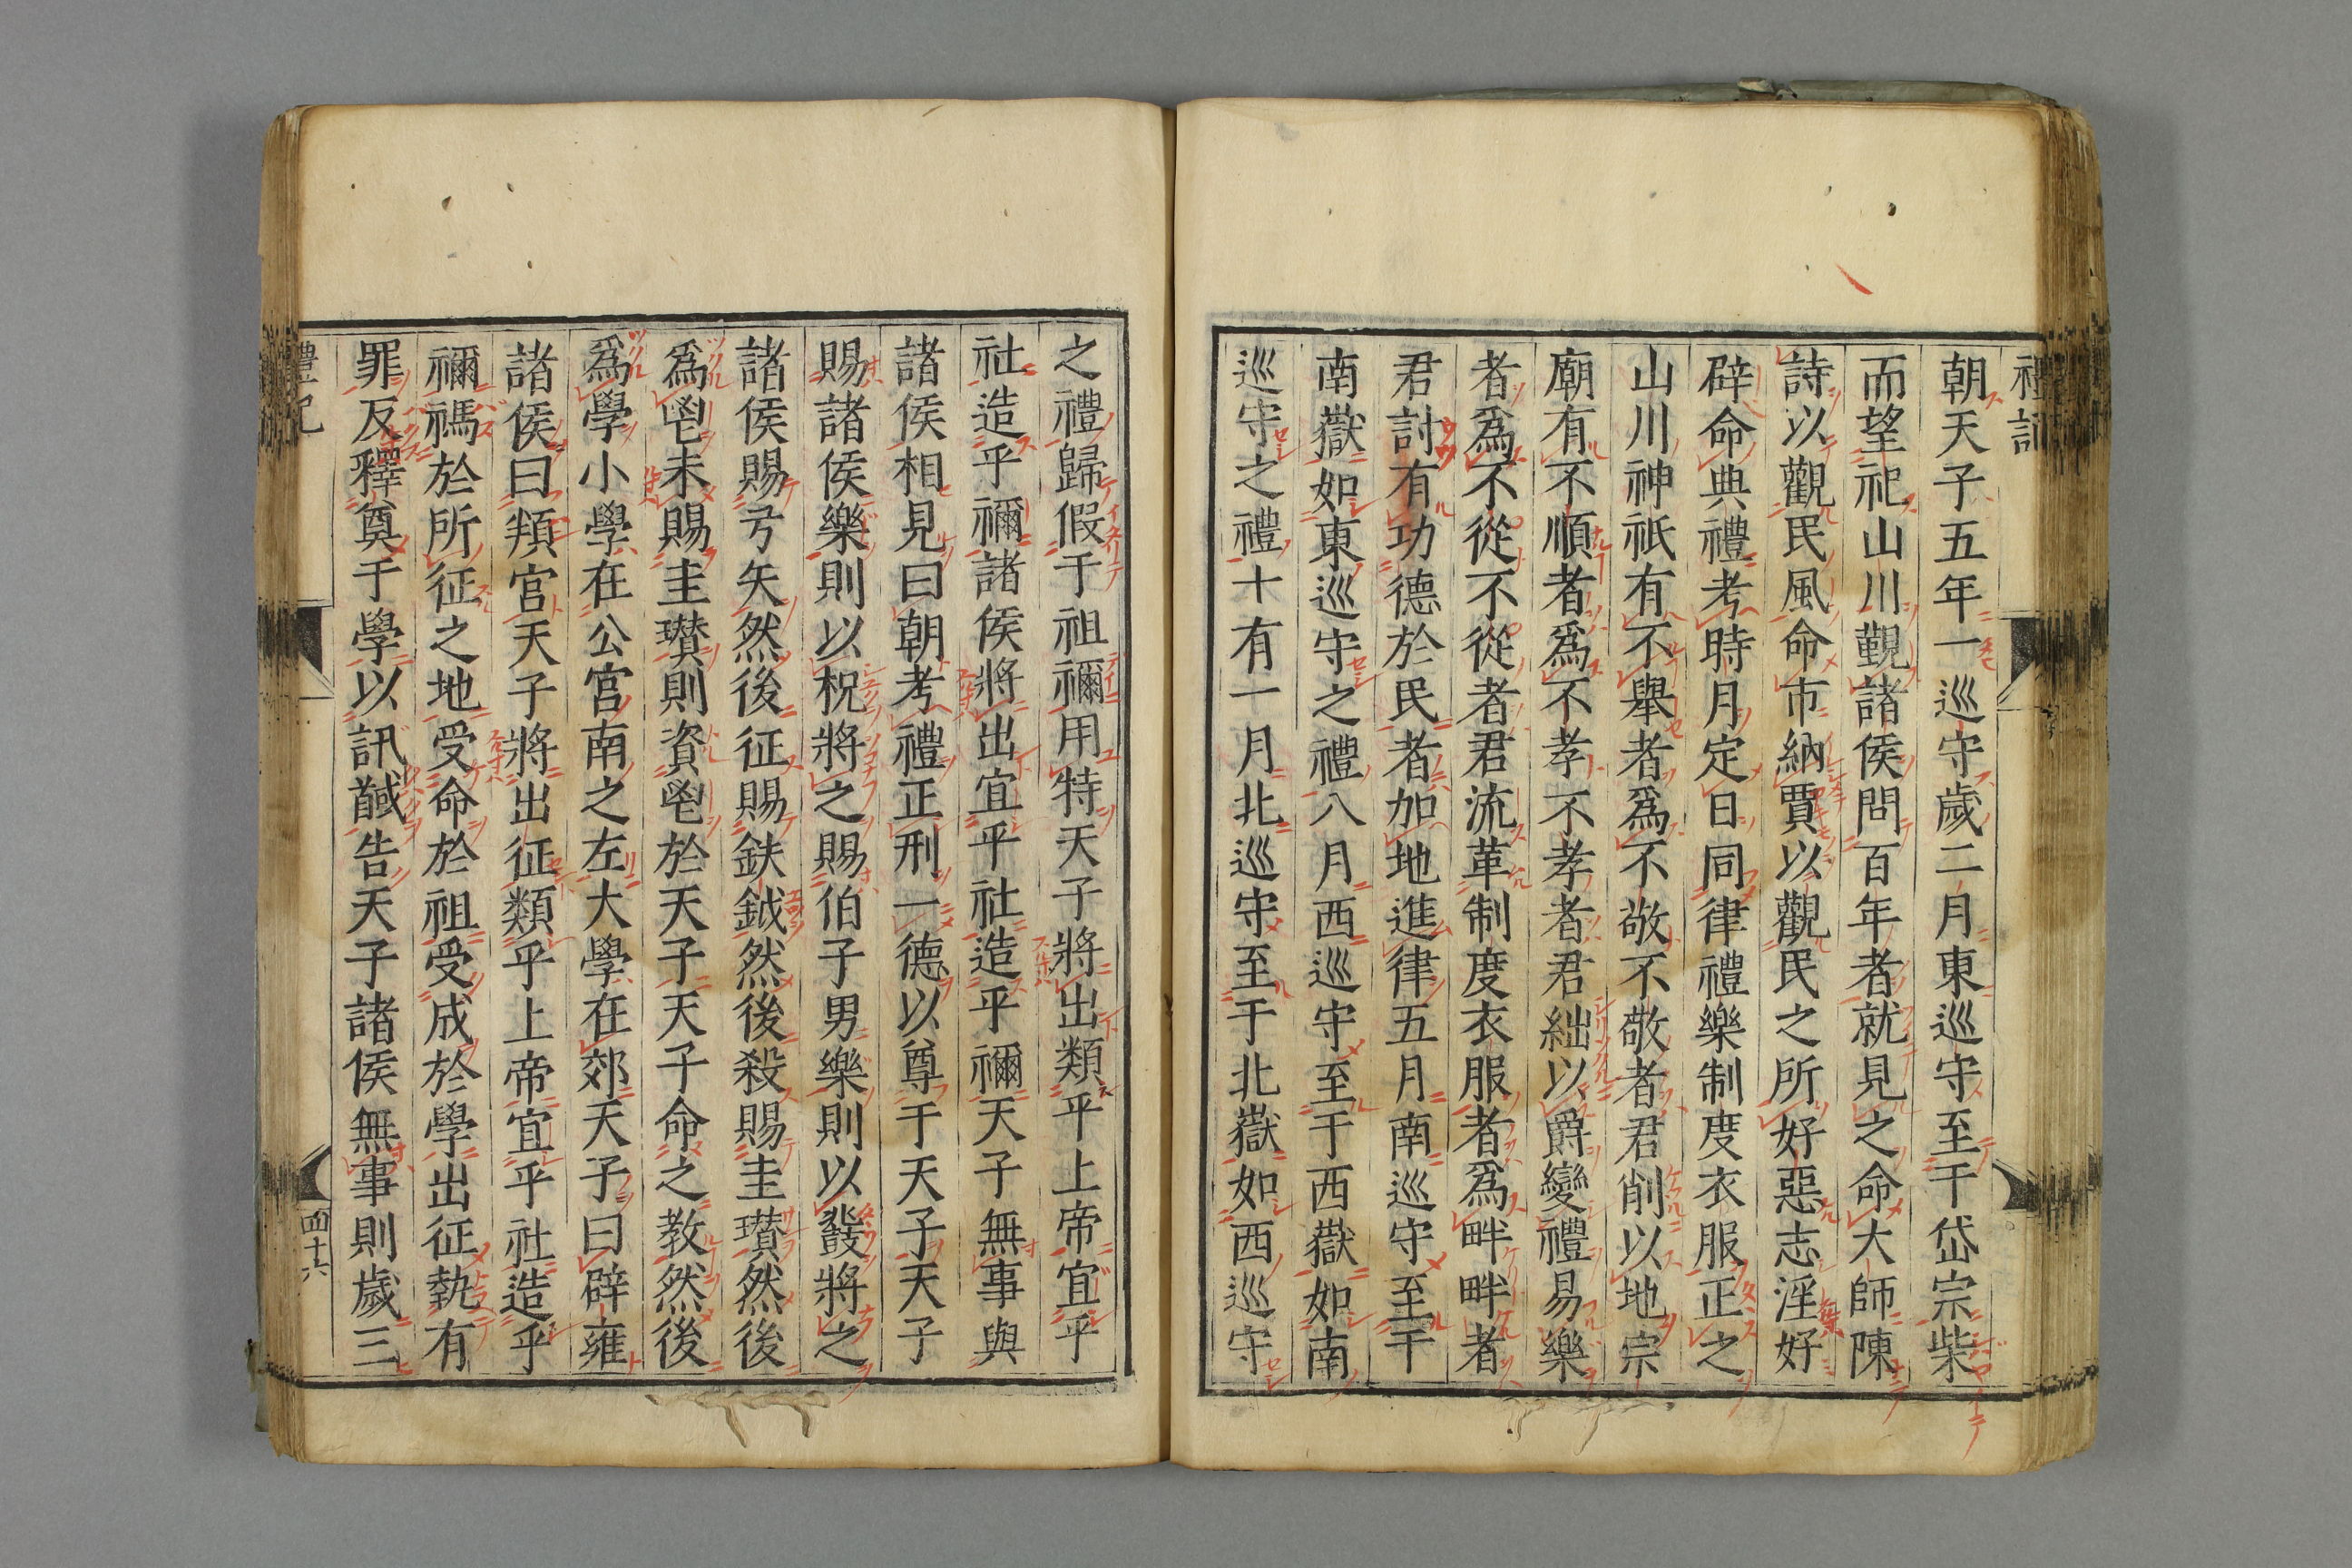 禮記
朝天子五年一巡守歲二月東巡守至于岱宗柴
而望祀山川覲諸侯問百年者就見之命大師陳
詩以觀民風命市納賈以觀民之所好惡志淫好
辟命典禮考時月定日同律禮樂制度衣服正之
山川神祇有不舉者爲不敬不敬者君削以地宗
廟有不順者爲不孝不孝者君絀以爵變禮易樂
者爲不從不從者君流革制度衣服者爲畔畔者
君討有功德於民者加地進律五月南巡守至于
南嶽如東巡守之禮八月西巡守至于西嶽如南
巡守之禮十有一月北巡守至于北嶽如西巡守
之禮歸假于祖禰用特天子將出類乎上帝宜乎
社造乎禰諸侯將出宜乎社造乎禰天子無事與
諸侯相見曰朝考禮正刑一德以尊于天子天子
賜諸侯樂則以柷將之賜伯子男樂則以鼗將之
諸侯賜弓矢然後征賜鈇鉞然後殺賜圭瓚然後
爲鬯未賜圭瓚則資鬯於天子天子命之教然後
爲學小學在公宮南之左大學在郊天子曰辟雍
諸侯曰頖宮天子將出征類乎上帝宜乎社造乎
禰禡於所征之地受命於祖受成於學出征執有
罪反釋奠于學以訊馘告天子諸侯無事則歲三
禮記
四十六